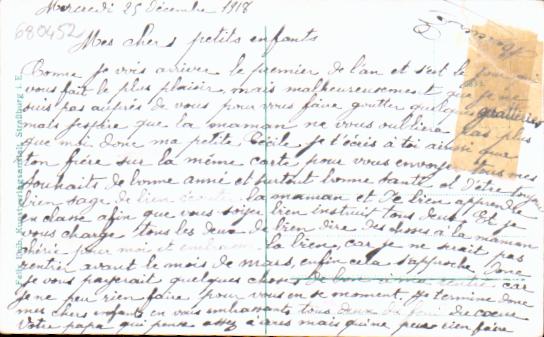 Mercredi 25 Décembre 1918
680452
Mes chers petits enfants
Comme je vois arriver le premier de l'an et s'est le jour qui
vous fait le plus plaisir, mais malheureusement que je ne
suis pas auprès de vous pour vous faire goutter quelques gratteries
mais j'espère que la maman ne vous oubliera pas plus
que moi donc ma petite Cécile je t'écris à toi ainsi que
ton frère sur la même carte pour vous envoyer tous mes
souhaits de bonne année et surtout bonne santé et d'être toujours
bien sage de bien écouter la maman et de bien apprendre
en classe afin que vous soyer bien instruit tous deux Et je
vous charge tous les deux de bien dire des choses à la maman
chérie pour moi et la bien, car je ne serait pas
rentrer avant le mois de mars, enfin cela s'approche, Donc
je vous paiyerait quelques choses de bon à ma rentrée car
je ne peu rien faire pour vous en se moment. Je termine donc
mes chers enfants en vous embrassants tous deux du coeur
Votre papa qui pense assez à vous mais qui ne peus rien faire
Felix Luib, Kunstverlagsanstalt, Straßburg i. E.